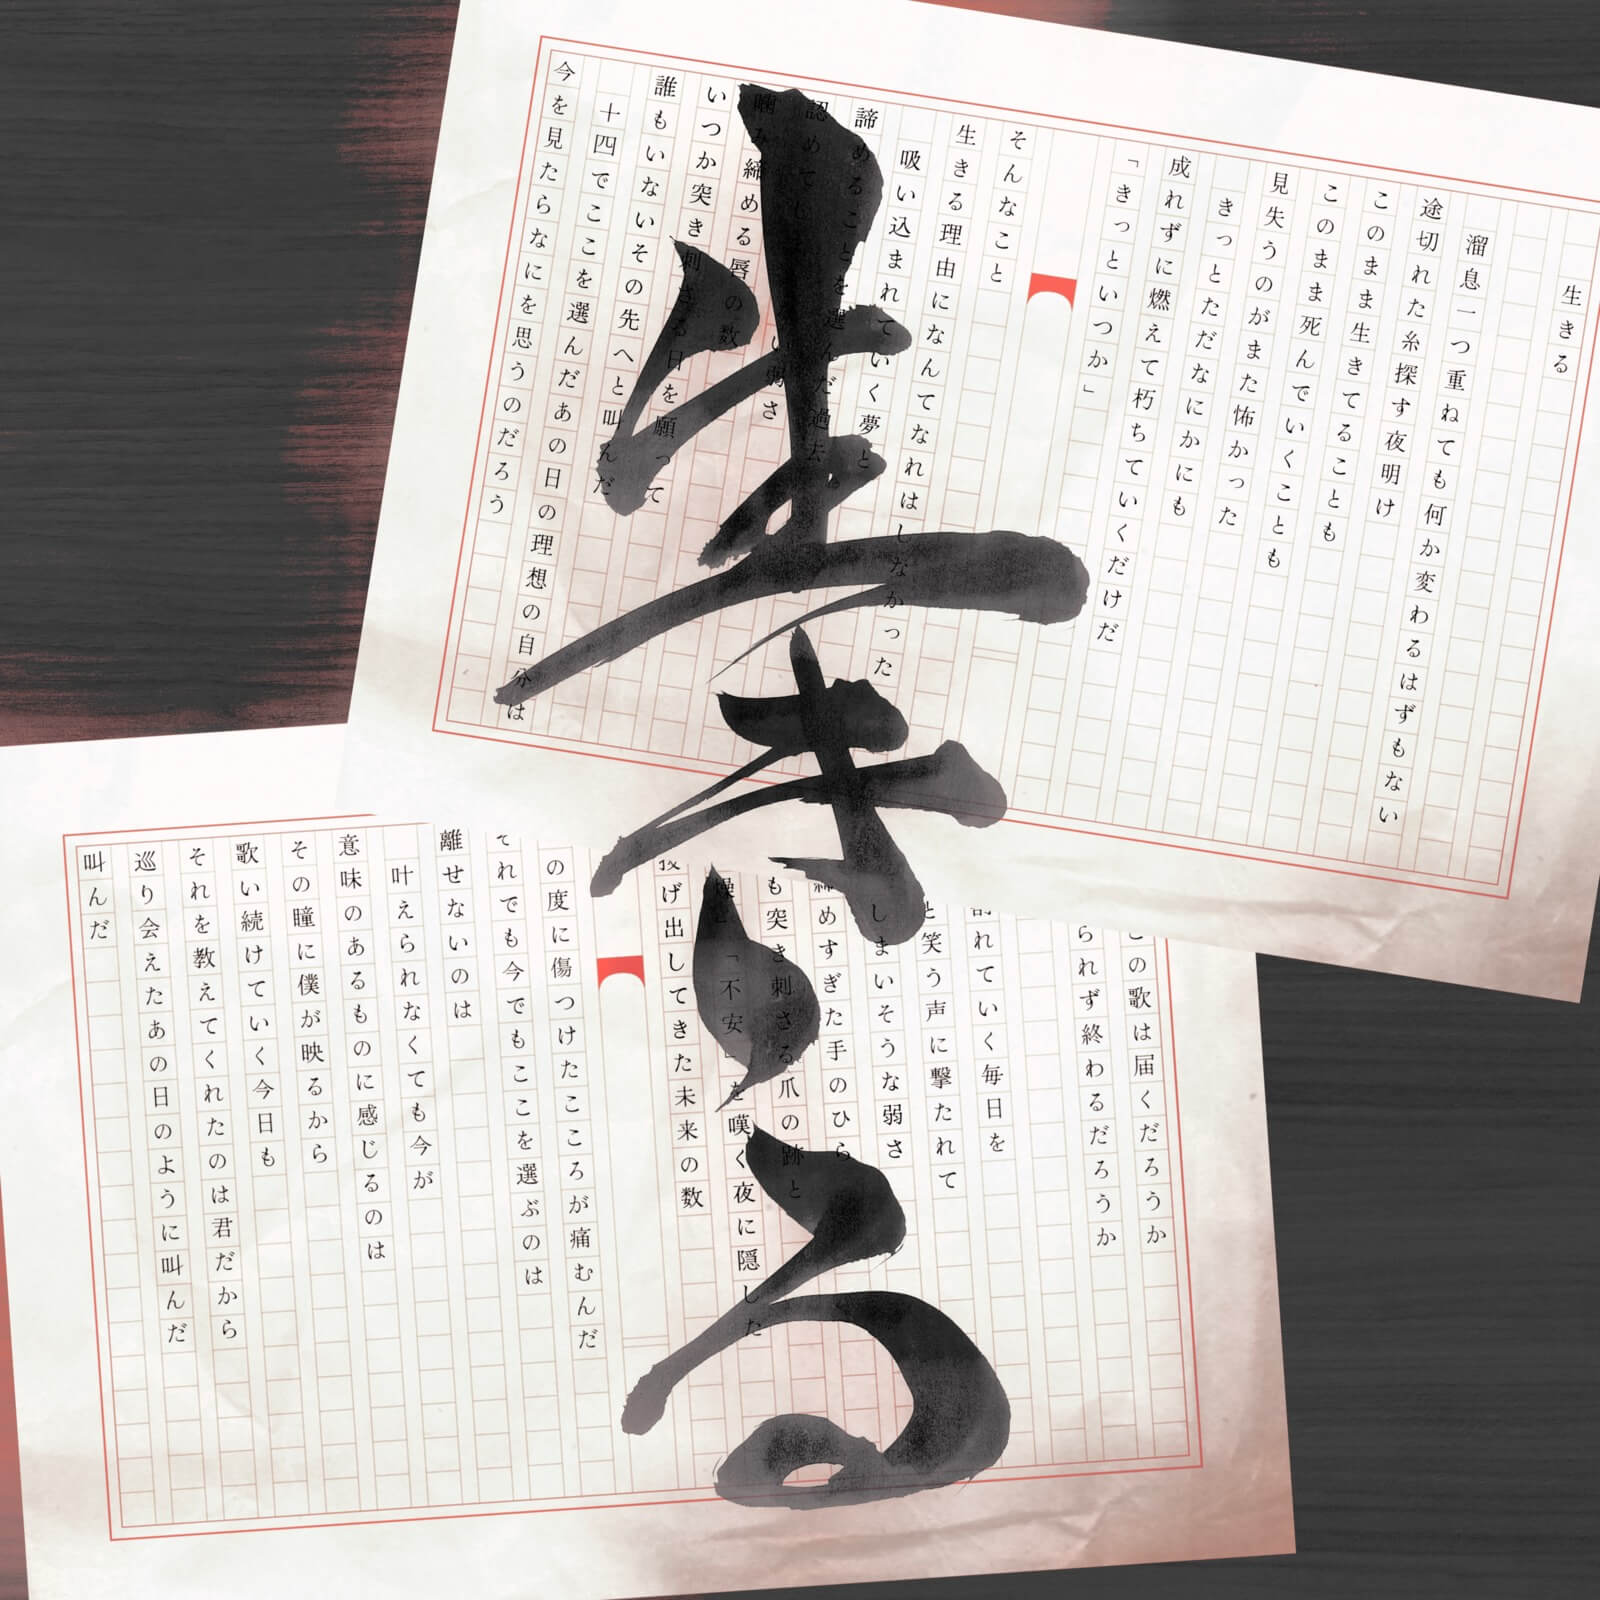 生きる
生きる
溜息一つ重ねても何か変わるはずもない
途切れた糸探す夜明け
このまま生きてることも
このまま死んでいくことも
見失うのがまた怖かった
きっとただなにかにも
成れずに燃えて朽ちていくだけだ
「きっといつか」
そんなこと
生きる理由になんてなれはしなかった
吸い込まれていく夢と
諦めることを選んだ過去
認めて弱さ
噛み締める唇の数
いつか突き刺さる日を願って
誰もいないその先へと叫んだ
十四でここを選んだあの日の理想の自分は
今を見たらなにを思うのだろう
この歌は届くだろうか
られず終わるだろうか
れていく毎日を
と笑う声に撃たれて
しまいそうな弱さ
めすぎた手のひら
も突き刺さる爪の跡と
「不安」を嘆く夜に隠した
投げ出してきた未来の数
の度に傷つけたこころが痛むんだ
それでも今でもここを選ぶのは
離せないのは
叶えられなくても今が
意味のあるものに感じるのは
その瞳に僕が映るから
歌い続けていく今日も
それを教えてくれたのは君だから
巡り会えたあの日のように叫んだ
叫んだ